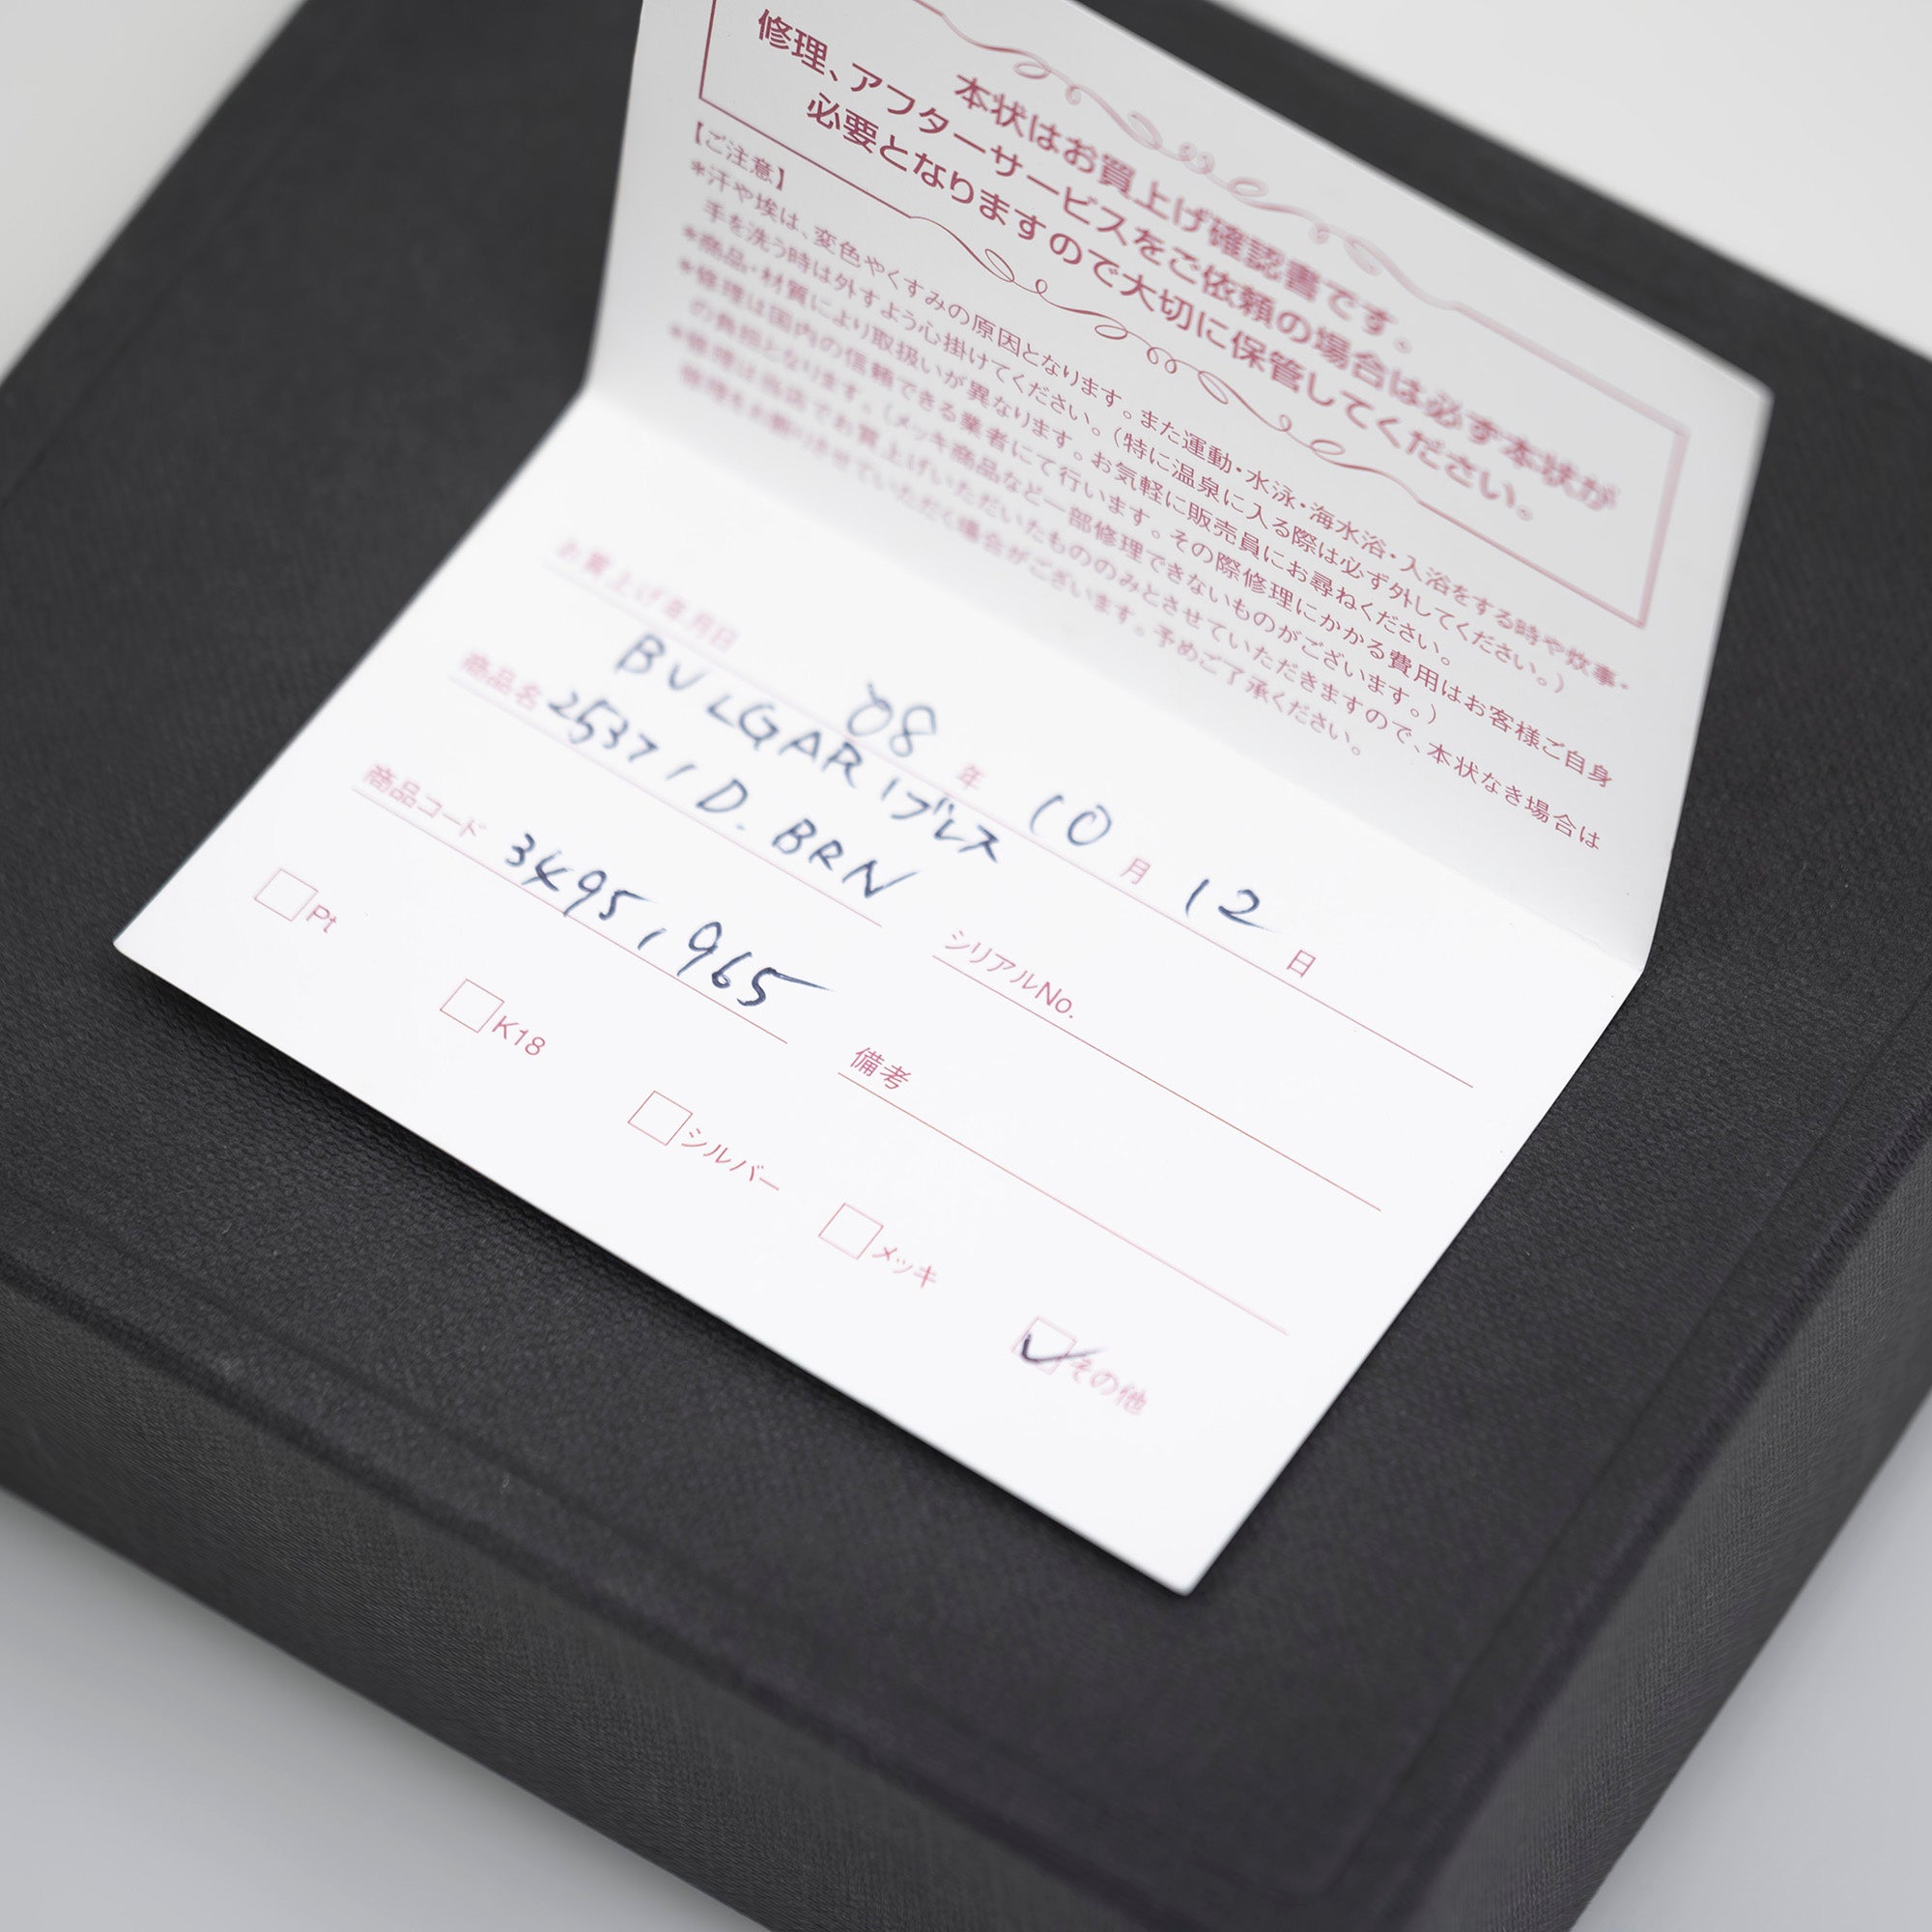 本状はお買上げ確認書です。
修理、アフターサービスをご依頼の場合は必ず本状が
必要となりますので大切に保管してください。
【ご注意】
*汗や埃は、変色やくすみの原因となります。また運動・水泳・海水浴・入浴をする時や炊事・
手を洗う時は外すよう心掛けてください。（特に温泉に入る際は必ず外してください。）
*商品・材質により取扱いが異なります。お気軽に販売員にお尋ねください。
*修理は国内の信頼できる業者にて行います。その際修理にかかる費用はお客様ご自身
の負担となります。（メッキ商品など一部修理できないものがございます。）
*修理は当店でお買上げいただいたもののみとさせていただきますので、本状なき場合は
修理をお断りさせていただく場合がございます。予めご了承ください。
お買上げ年月日 '08 年 10 月 12 日
BVLGARIブレス
商品名 25371 D. BRN シリアルNo.
商品コード 3495,965 備考
Pt K18 シルバー メッキ その他